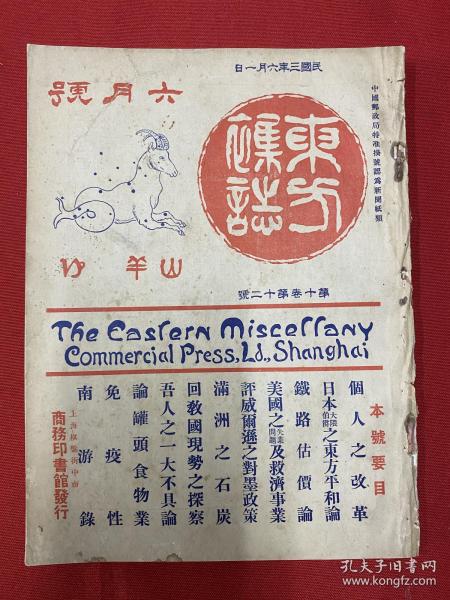 日一月六年三國民
中國郵政局特准掛號認爲新聞紙類
六月號
東方雜誌
山羊
號二十第卷十第
The Eastern Miscellany
Commercial Press, Ld., Shanghai
本號要目
個人之改革
日本大隈伯爵之東方平和論
鐵路估價論
美國之失業問題及救濟事業
評威爾遜之對墨政策
滿洲之石炭
回敎國現勢之探察
吾人之一大不具論
論罐頭食物業
免疫性
南游錄
上海棋盤街中市
商務印書館發行
孔夫子旧书网
www.kongfz.com